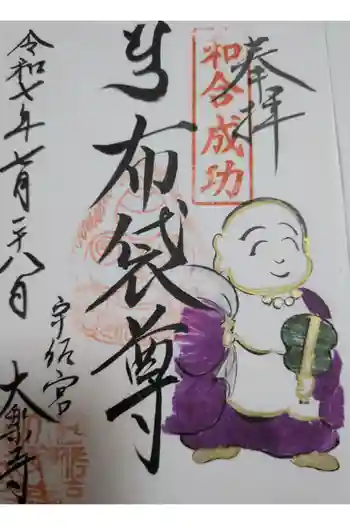 奉拝
和合成功
布袋尊
宇都宮
大楽寺
令和七年七月二十八日